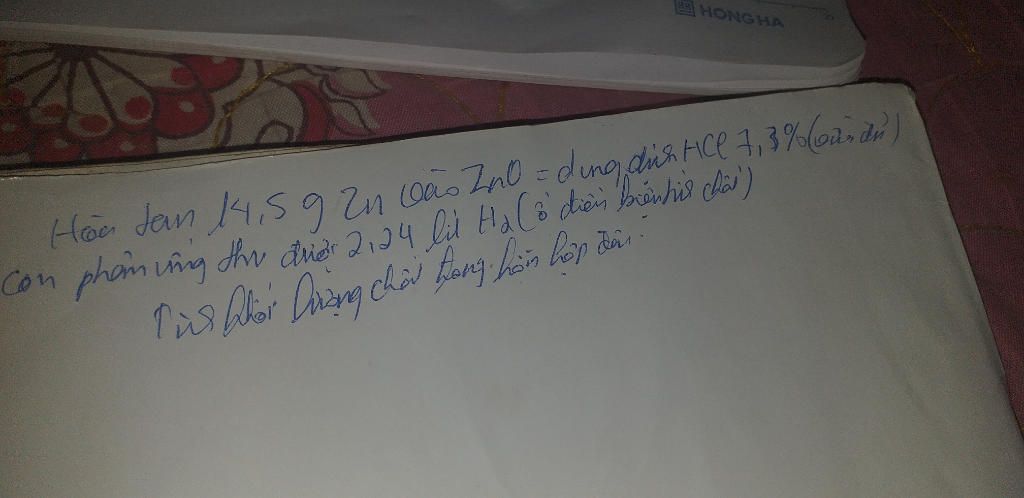 HONG HA
Hòa tan 14,5 g Zn vào ZnO = dung dịch HCl 7,3% (vừa đủ)
con phản ứng thu được 2,24 lít H2 (ở điều kiện chất)
Tính khối lượng chất trong hỗn hợp đầu.